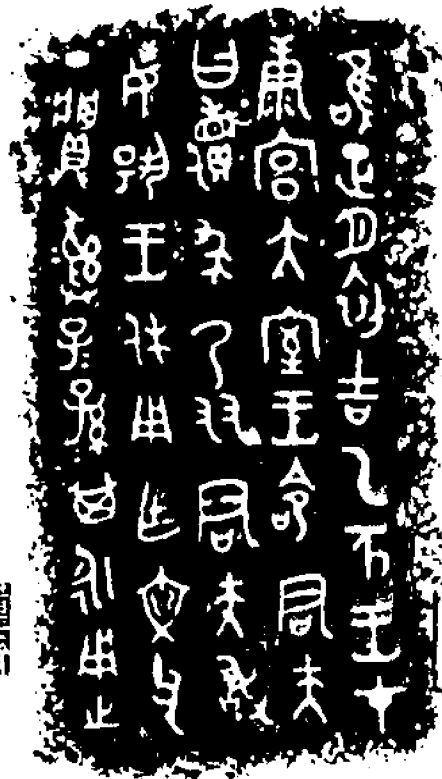 唯正月初吉乙亥王才
康宮大室王命君夫
曰儥求乃友君夫敢
揚王休用乍文父
丁彝子子孫孫其永用之